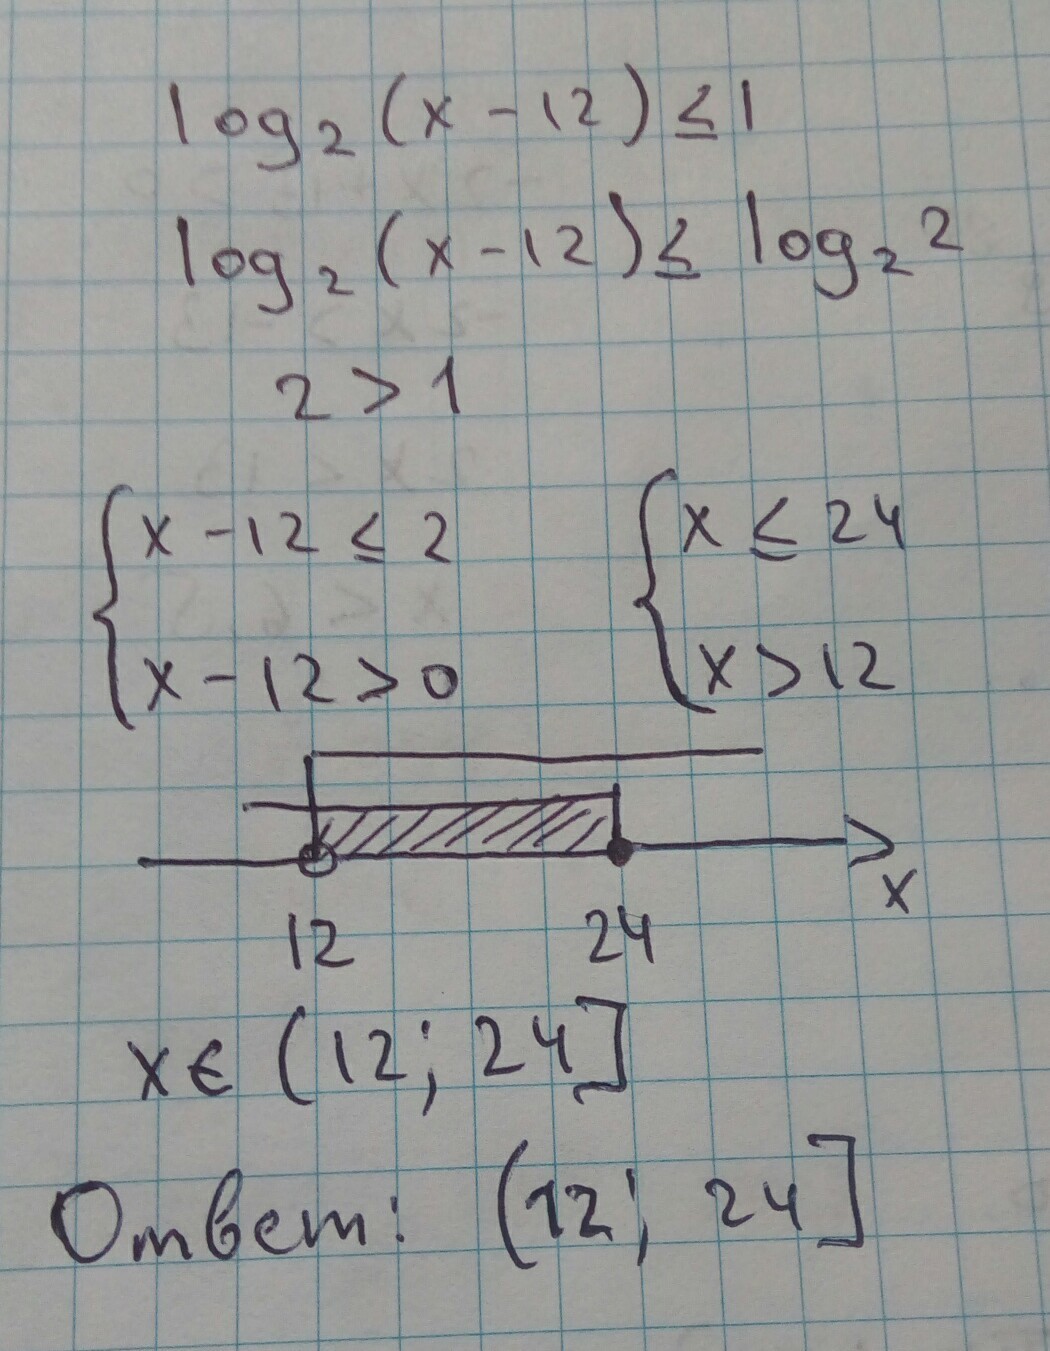 log₂(x - 12) ≤ 1
log₂(x - 12) ≤ log₂ 2
2 > 1
{ x - 12 ≤ 2 { x ≤ 24
{ x - 12 > 0 { x > 12
x
12 24
x ∈ (12; 24]
Ответ: (12; 24]